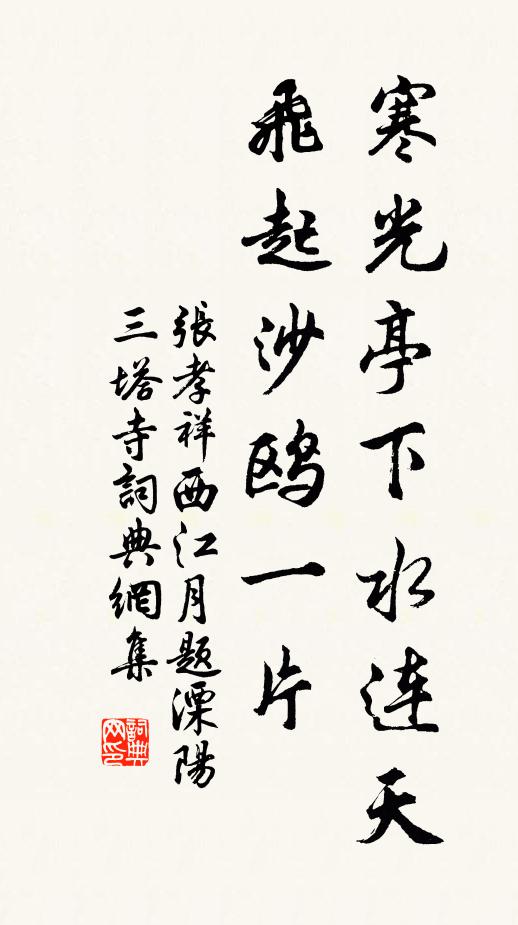 寒光亭下水连天
飛起沙鸥一片
張孝祥西江月题溧陽
三塔寺詞典網集
詞典网印